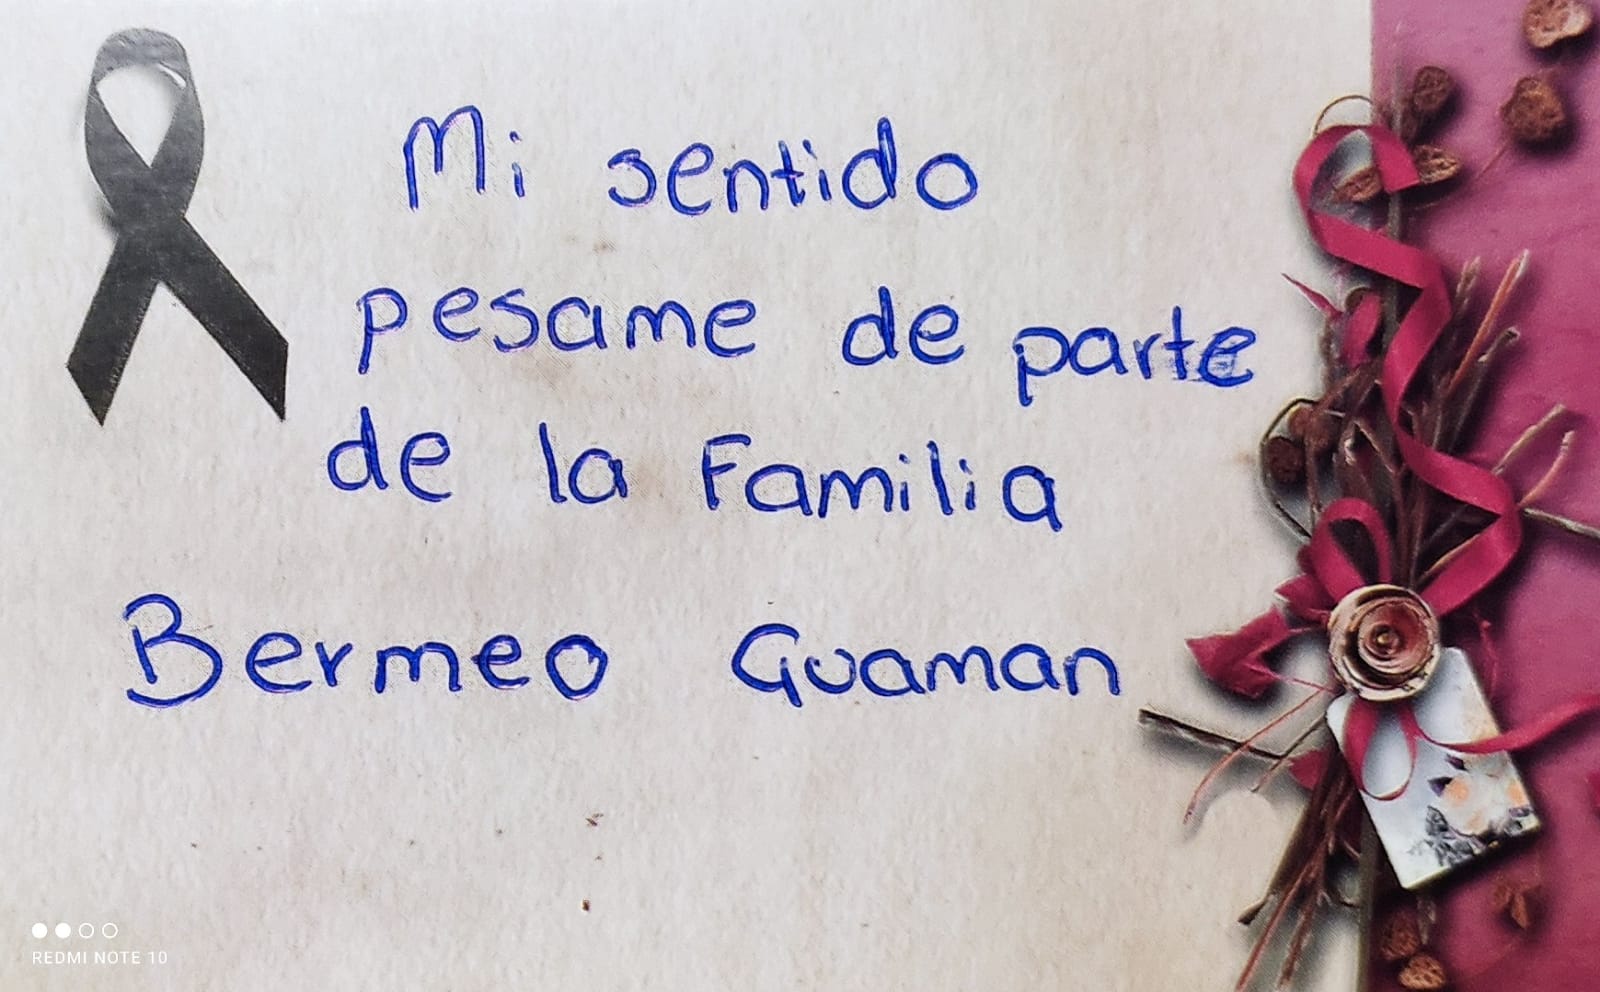 Mi sentido
pesame de parte
de la Familia
Bermeo Guaman
REDMI NOTE 10